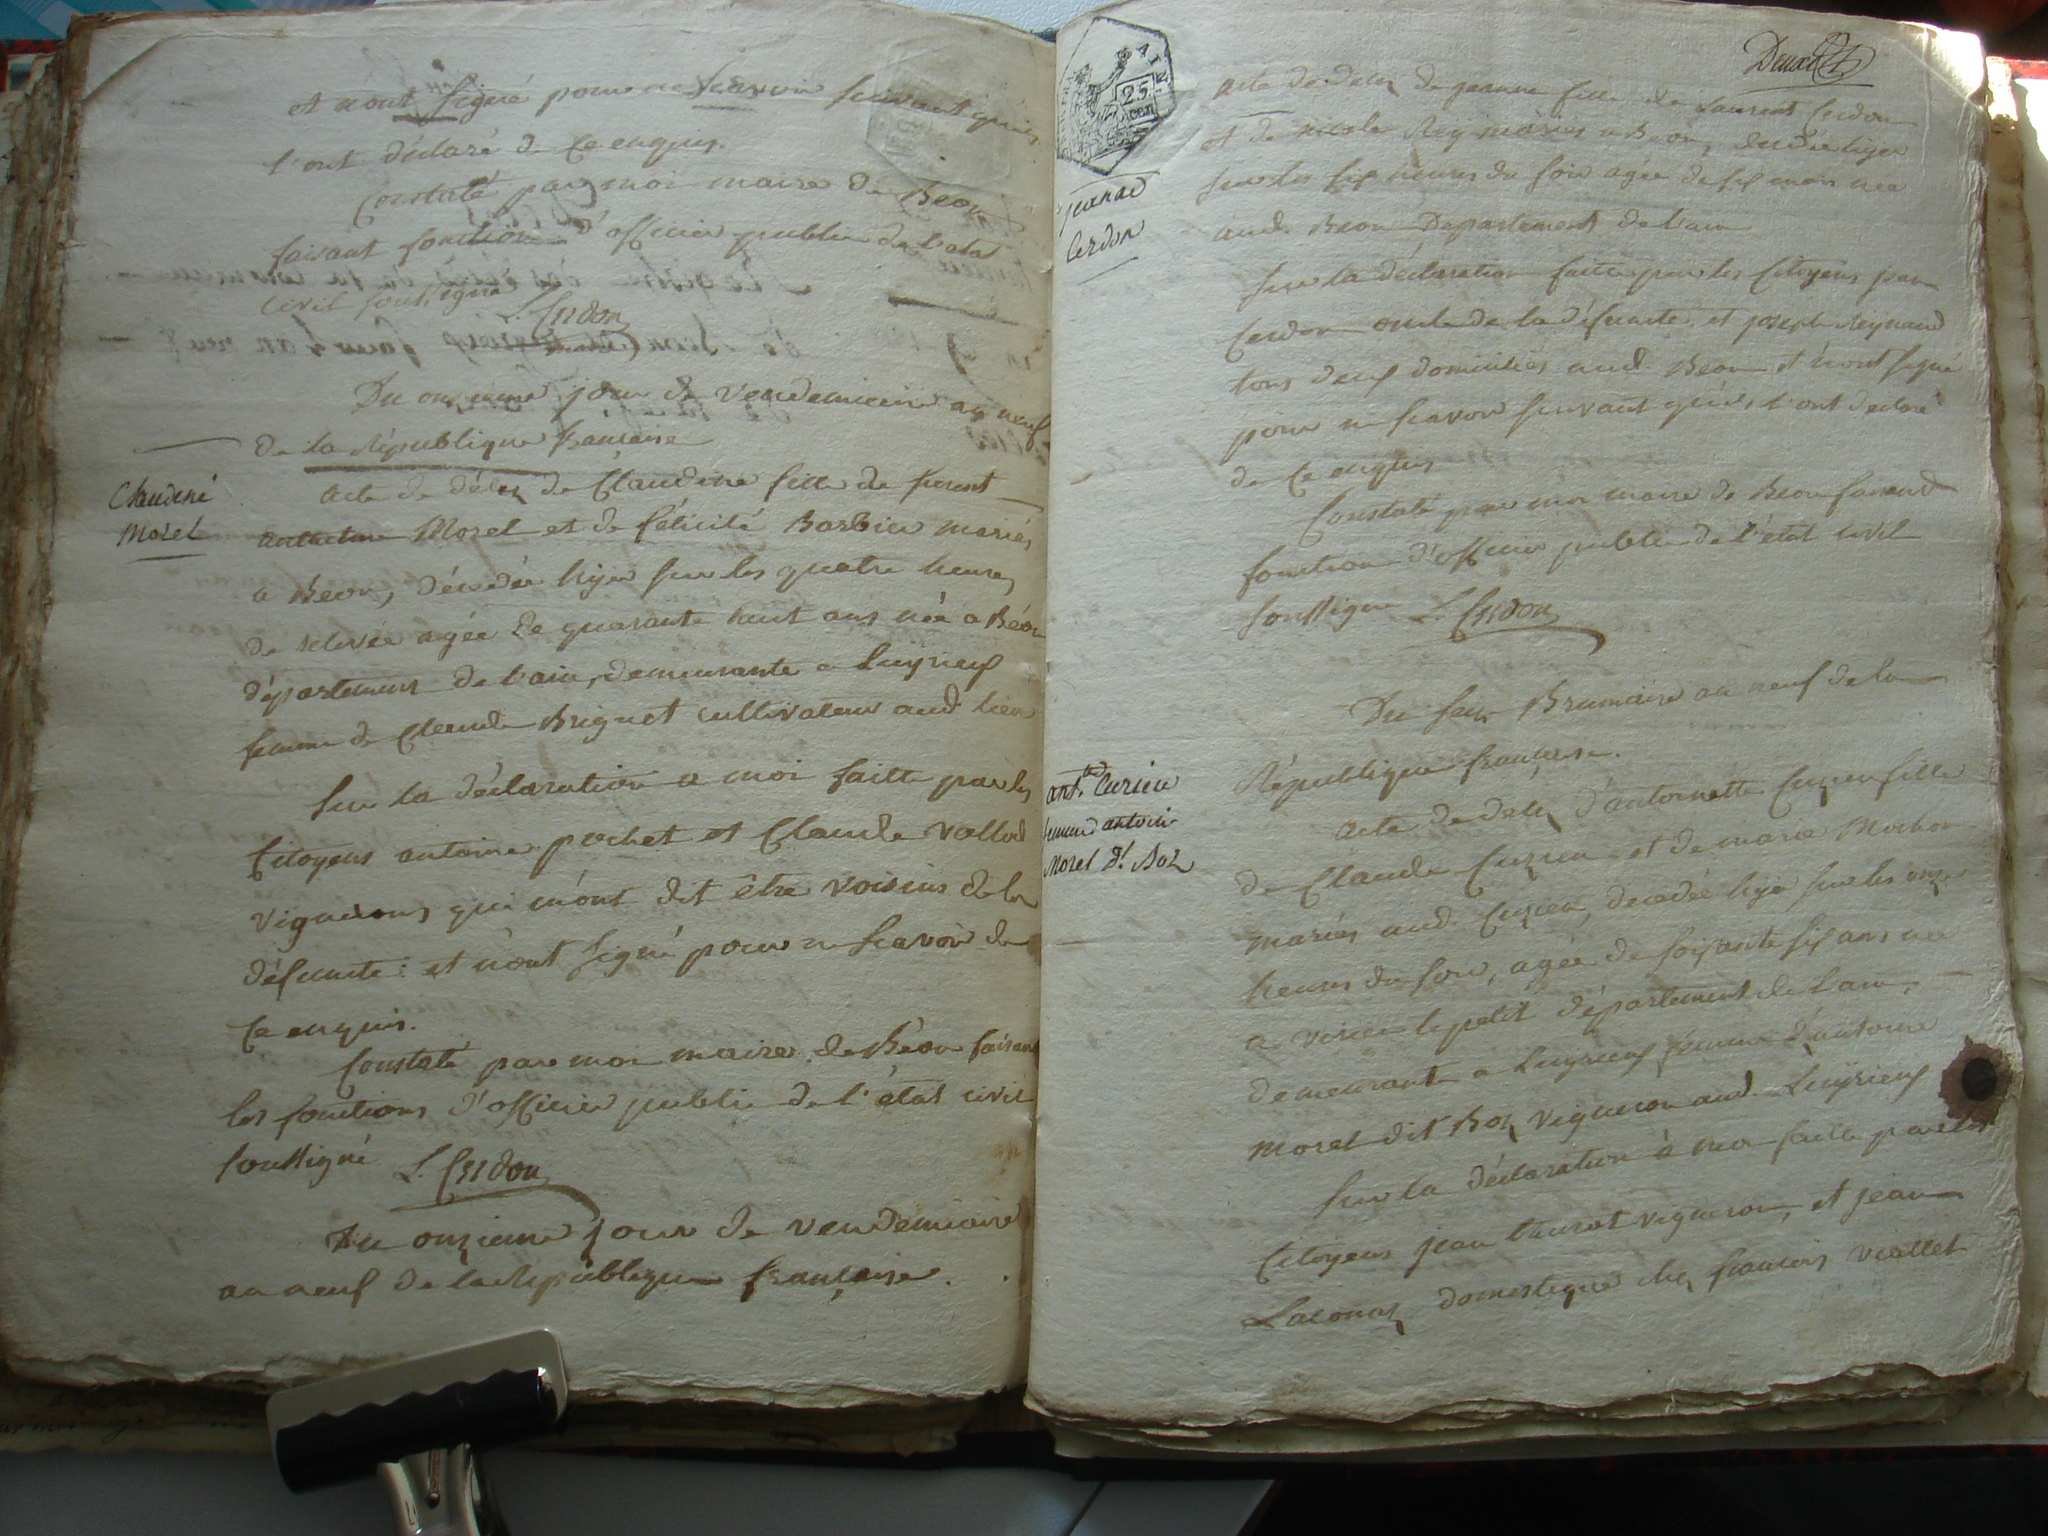 et n'ont signé pour ne scavoir suivant qu'ils
l'ont déclaré de ce enquis.
Constaté par moi maire de Beon
faisant fonctions d'officier public de l'etat
civil soussigné L. Cerdon
Du onzieme jour de vendemiaire an neuf
de la République francaise
Claudine
Morel
acte de décez de Claudine fille de furent
Morel et de félicité Barbier mariés
a Beon, décédée hijer sur les quatre heures
de relevée agée de quarante huit ans née a Béon
département de l'ain, demeurante a Luyrieux
femme de Claude Briguet cultivateur aud. lieu
Sur la déclaration a moi faitte par les
Citoyens antoine pochet et Claude Vallod
vignerons qui m'ont dit être voisins de la
défunte: et n'ont signé pour ne scavoir de
ce enquis.
Constaté par moi maire de Béon faisant
les fonctions d'officier public de l'état civil
soussigné L. Cerdon
Du onzieme jour de vendemiaire
an neuf de la République française.
25
cen
jeanne
Cerdon
acte de decez de jeanne fille de Laurent Cerdon
et de nicole Rey mariés a Beon, decedée hijer
sur les six heures du soir agée de six mois née
aud. Beon Departement de l'ain
Sur la déclaration faitte par les Citoyens jean
Cerdon oncle de la défunte et joseph Reynaud
tous deux domiciliés aud. Beon et n'ont signé
pour ne scavoir suivant qu'ils l'ont declaré
de ce enquis
Constaté par moi maire de Beon faisant
fonctions d'officier public de l'état civil
soussigné L. Cerdon
Du seize Brumaire an neuf de la
République francaise.
ant.te Curieu
femme d'antoine
Morel d.t Boz
acte de decez d'antoinette Cuzieu fille
de Claude Cuzieu et de marie Mochon
mariés aud. Cuzieu, decedée hijer sur les onze
heures du soir, agée de soixante six ans née
a virieu le petit département de l'ain,
demeurante a Luyrieux femme d'antoine
Morel dit Boz vigneron aud. Luyrieux
Sur la déclaration à moi faitte par les
Citoyens jean vigneron, et jean
domestique chez francois viallet